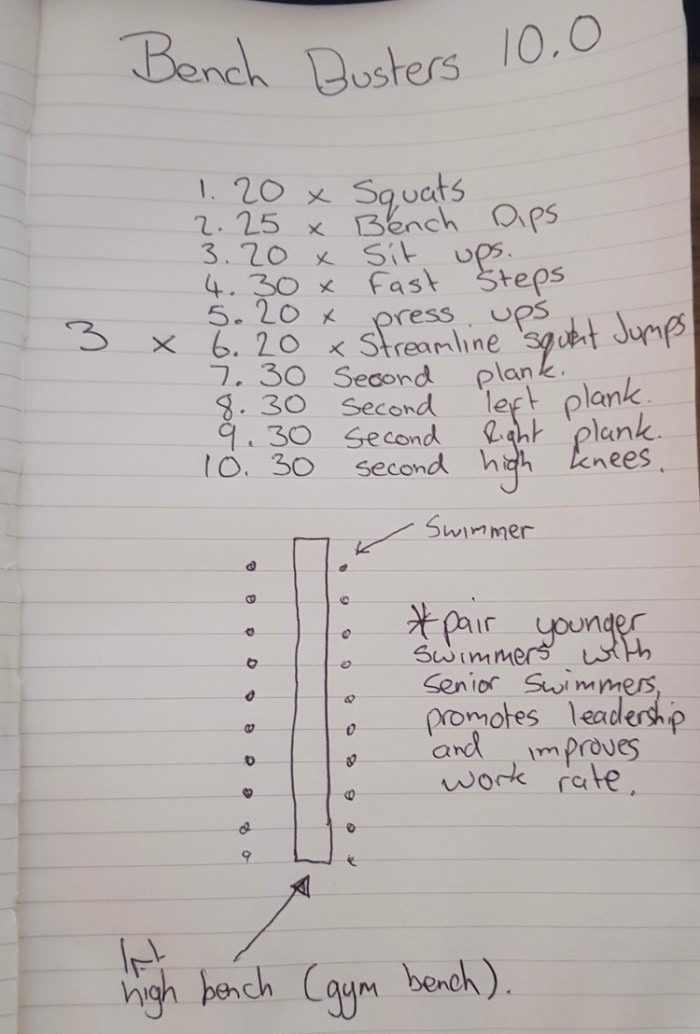 Bench Busters 10.0
1. 20 x Squats
2. 25 x Bench Dips
3. 20 x Sit ups.
4. 30 x Fast Steps
5. 20 x press ups
3 x 6. 20 x Streamline squat Jumps
7. 30 Second plank.
8. 30 second left plank.
9. 30 second Right plank.
10. 30 second high knees.
Swimmer
*pair younger
swimmers with
senior swimmers,
promotes leadership
and improves
work rate.
1ft
high bench (gym bench).